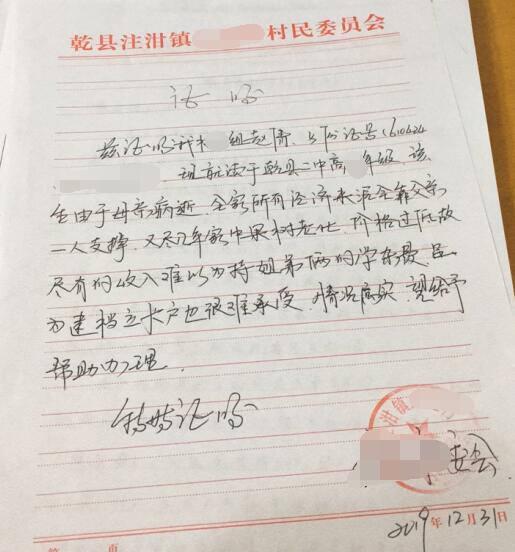 乾县注泔镇 村民委员会
证明
兹证明我村 组赵倩,身份证号(610424
现就读于乾县二中高 年级,该
生由于母亲病逝,全家所有经济来源全靠父亲
一人支撑,又尽几年家中果树老化,价格过低故
尽有的收入难以为持姐弟俩的学杂费,且
为建档立卡户也很难承受,情况属实,望给予
帮助办理.
特此证明
注泔镇
委会
2019年12月31日
第 页